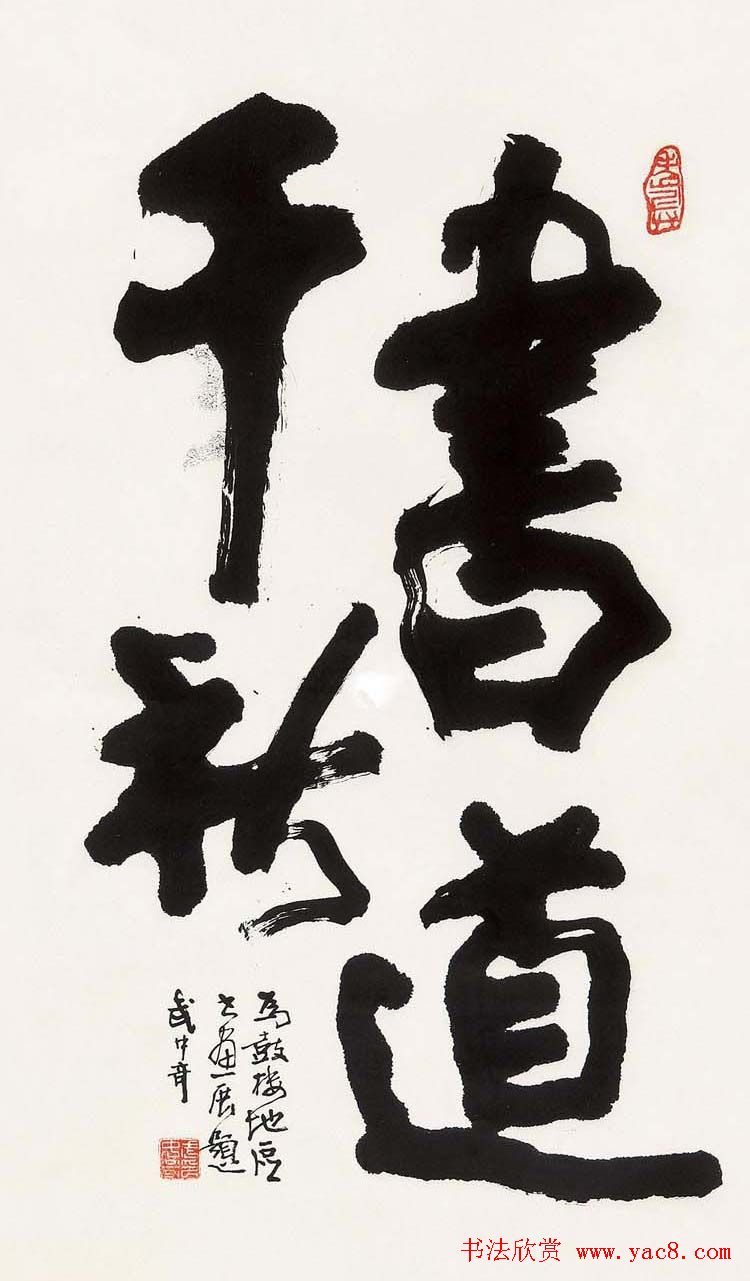 書道
千秋
為鼓楼地区
书画展題
武中奇
书法欣赏 www.yac8.com